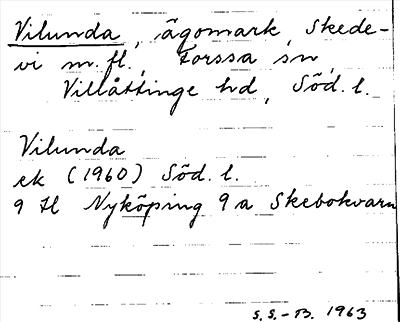 Vilunda, ägomark, Skede-
vi m.fl., Forssa sn,
Villåttinge hd, Söd. l.
Vilunda
ek (1960) Söd. l.
9 H Nyköping 9 a Skebokvarn
S.S.-B. 1963